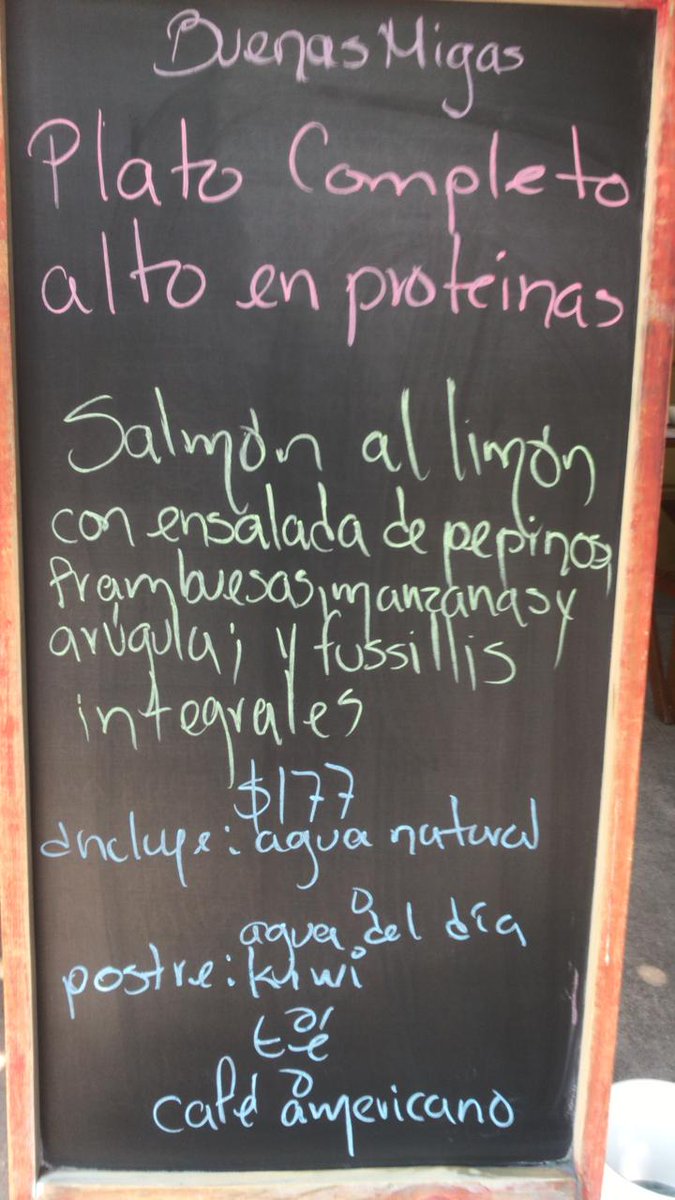 Buenas Migas
Plato Completo
alto en proteinas
Salmón al limón
con ensalada de pepinos,
frambuesas, manzanas y
arúgula; y fussillis
integrales
$177
Incluye: agua natural
o
agua del día
postre: kiwi
o
té
o
café americano